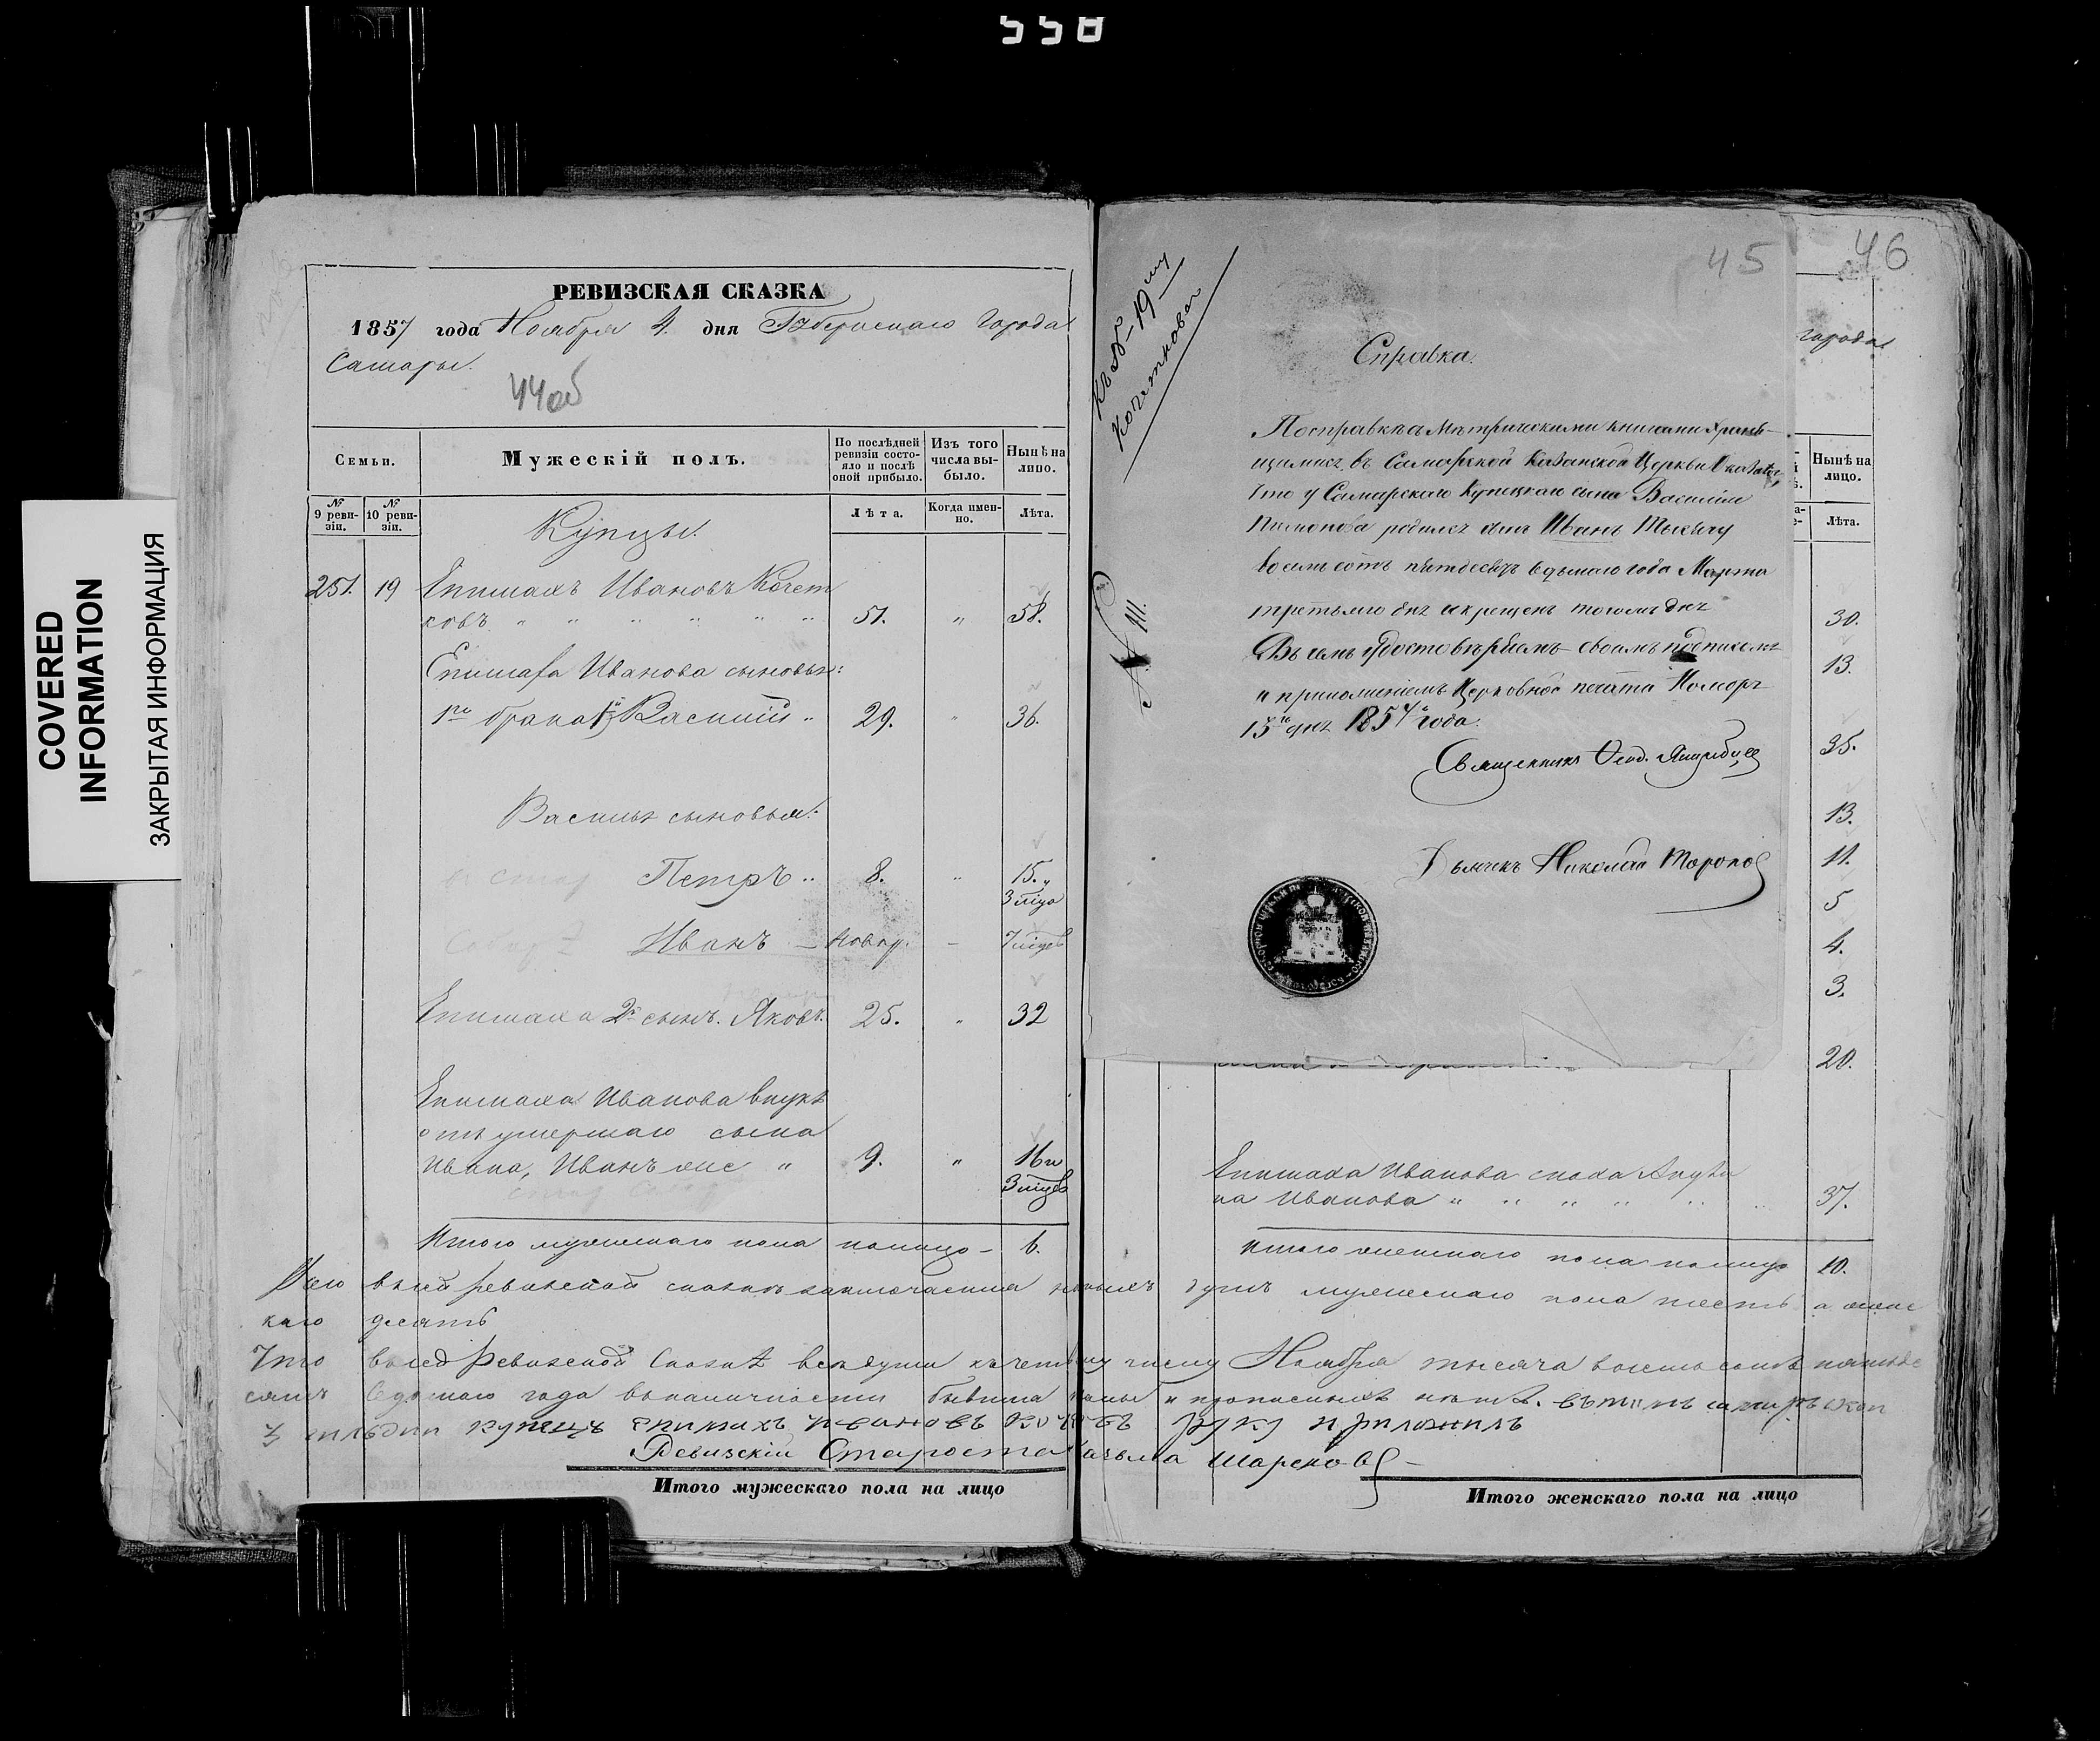 558
COVERED
INFORMATION
ЗАКРЫТАЯ ИНФОРМАЦИЯ
РЕВИЗСКАЯ СКАЗКА
1857 года Ноября 4. дня Губернскаго Города
Самары.
44об
Семьи.
Мужескій полъ.
По послѣдней ревизіи состояло и послѣ оной прибыло.
Изъ того числа выбыло.
Нынѣ на лицо.
№ 9 ревизіи.
№ 10 ревизіи.
Лѣта.
Когда именно.
Лѣта.
Купцы.
251. 19 Епимахъ Ивановъ Кочет
ковъ " " " " " " 51. " 58.
Епимаха Ивановa сыновья:
1го брака 1й Василий " 29. " 36.
Василья сыновья:
Петръ " 8. " 15. и
3 мѣс
Иванъ — новор. — 7 мѣсяц
Епимаха 2й сынъ. Яковъ. 25. " 32
Епимаха Иванова внукъ
отъ умершаго сына
Ивана, Иванъ же " 9. " 16 и
3 мѣсяц
Итого мужескаго пола налицо — 6.
Итого мужескаго пола на лицо
45
46
Къ № 19му
Кочеткова
№ 111.
Справка.
По справкѣ съ Метрическими книгами храня-
щимися въ Самарской Казанской Церкви оказалось,
что у Самарскаго Купецкаго сына Василія
родился сынъ Иванъ Тысячу
восемь сотъ пятдесятъ седьмаго года Марта
третьяго дня и крещенъ того ж дня
Въ семъ удостовѣряемъ своимъ подписомъ
и приложеніемъ Церковной печати Ноября
15го дня 1857 года.
Священникъ Ѳеод.
Дьячекъ Николай Торопов
города
Нынѣ на лицо.
Лѣта.
30.
13.
35.
13.
11.
5
4.
3.
20.
Епимаха Иванова сноха
на Иванова " " " " " " 37.
Итого женскаго пола налицо 10.
Что въ сей ревизской сказкѣ заключается душъ мужескаго пола шесть а женс
каго десять
Что въ сей Ревизской Сказкѣ всѣ души къ четвертому числу Ноября тысяча восемь сотъ пятьде
сятъ седьмаго года въ наличности бывшія и прописныхъ нѣтъ. въ томъ самарскои
3 гильдии купецъ епимахъ ивановъ руку приложилъ
Ревизскій Староста Шарепов
Итого женскаго пола на лицо